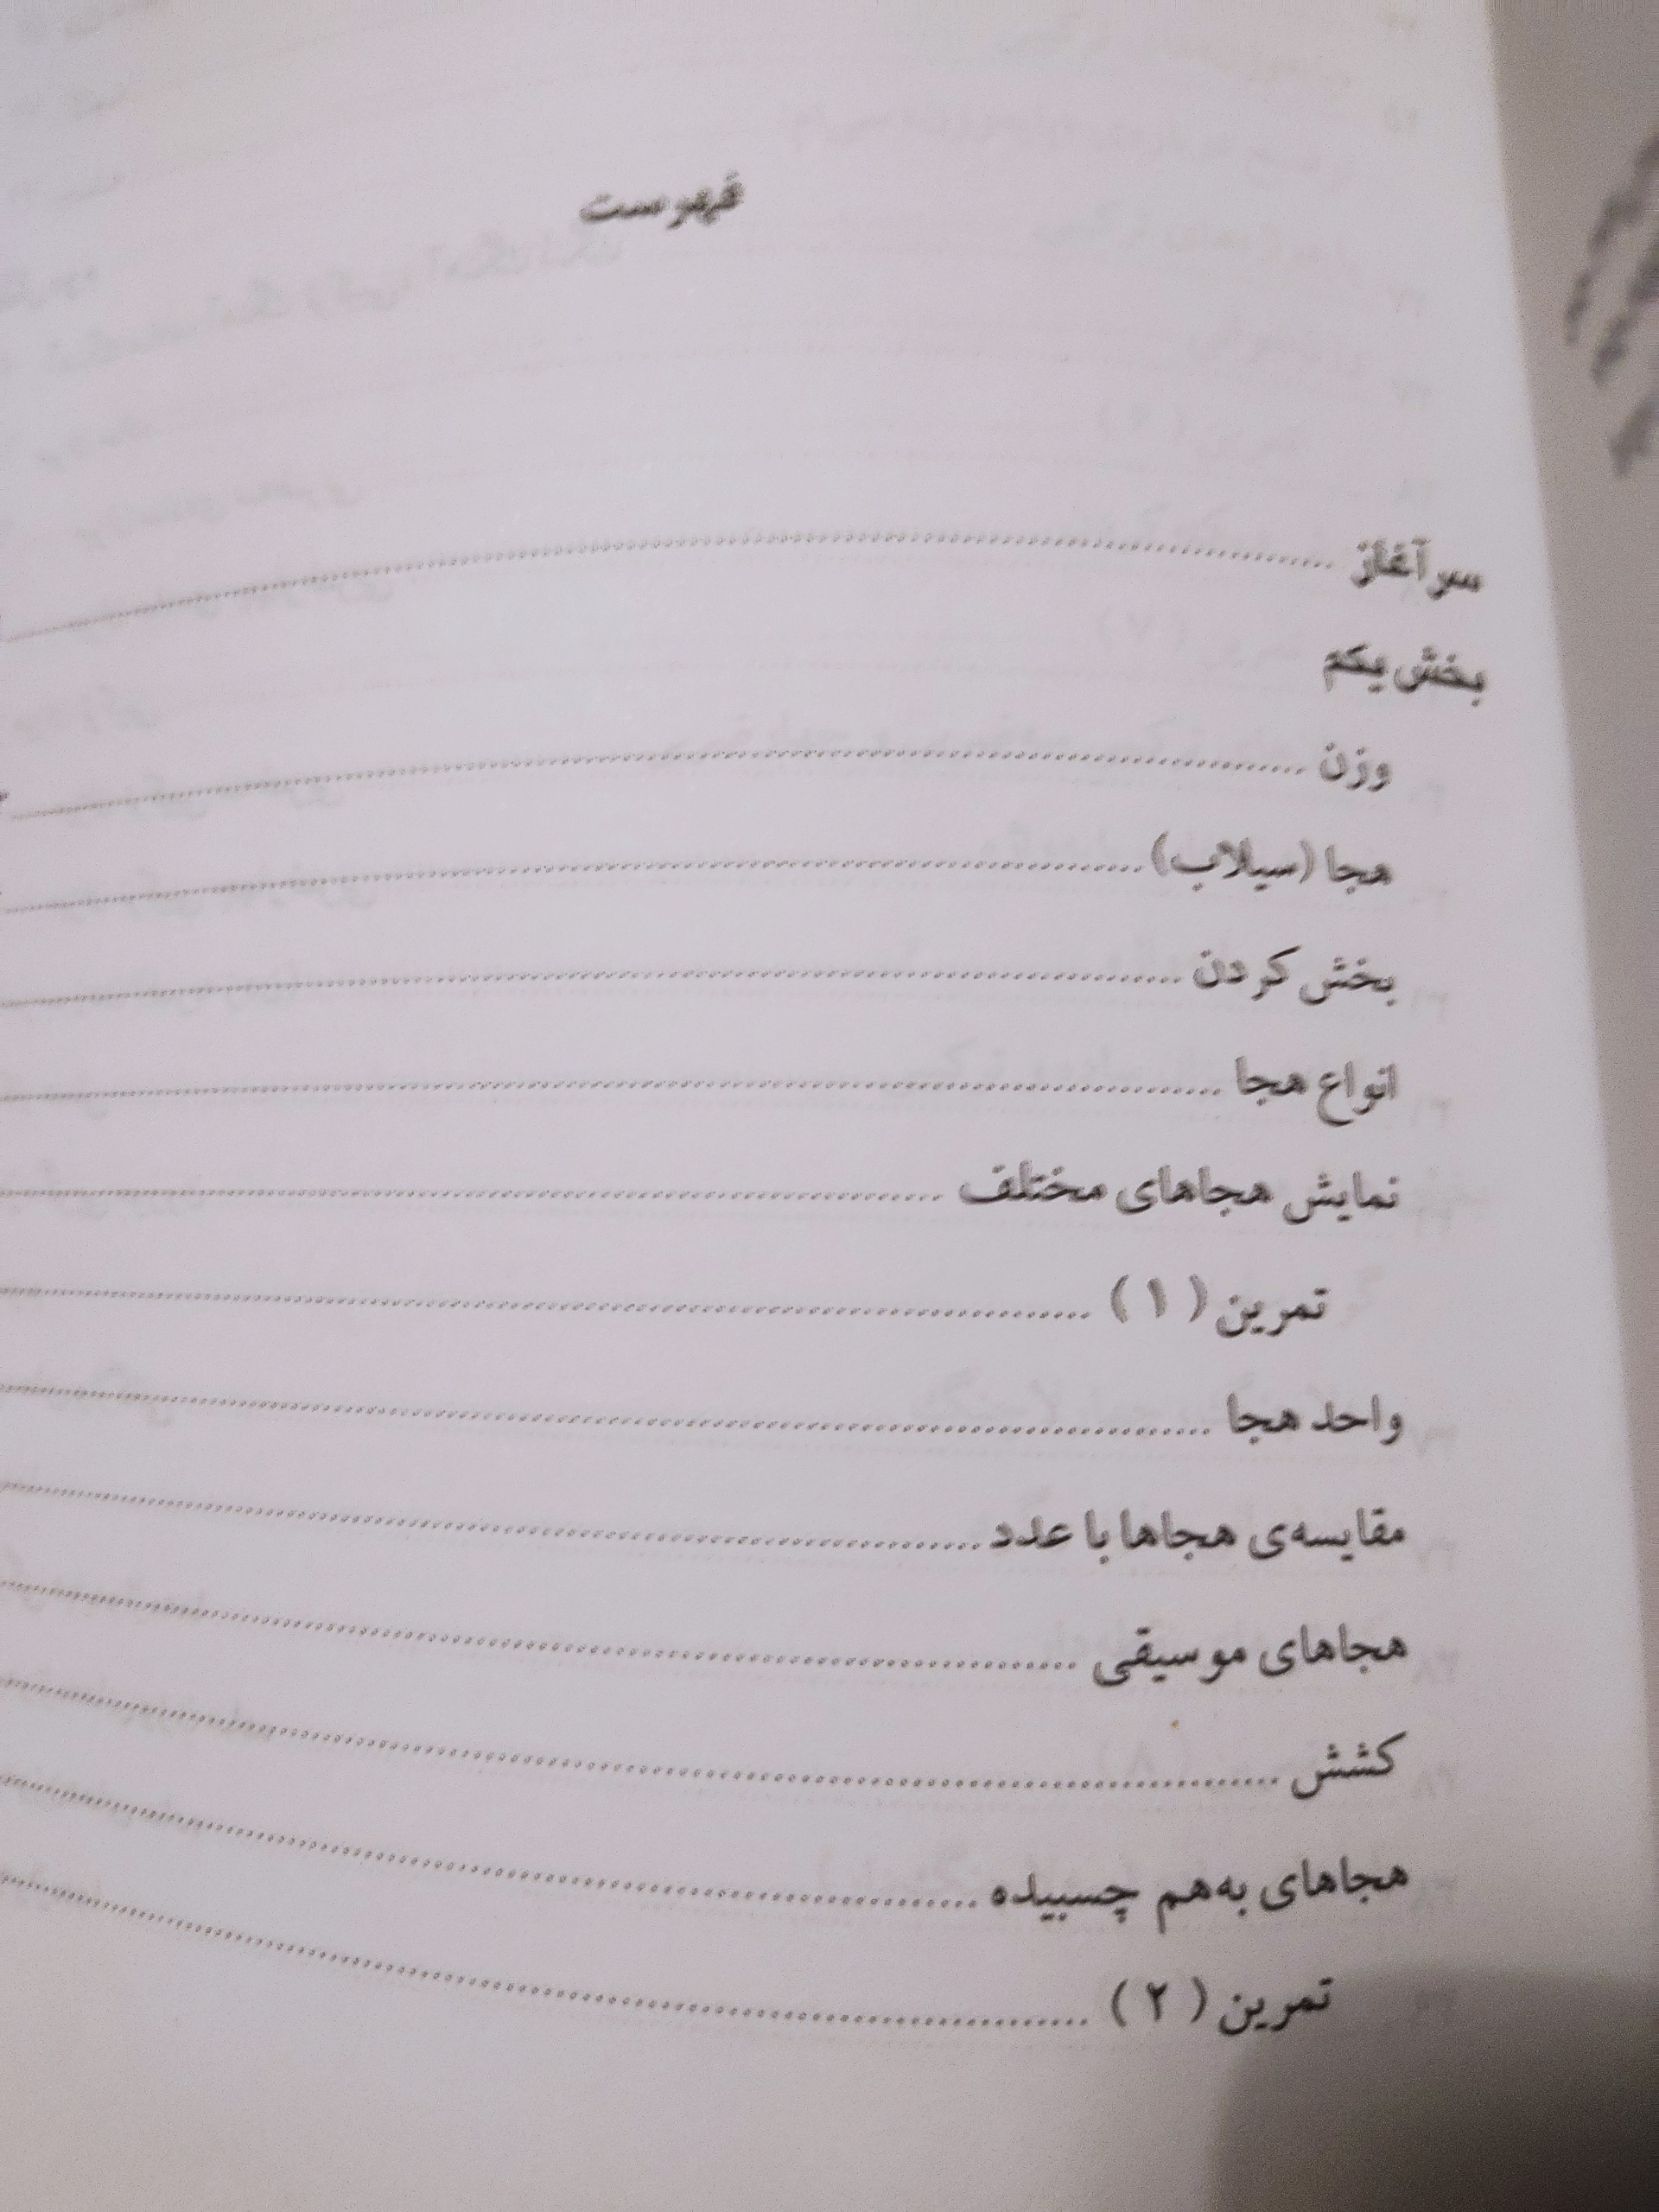 فهرست
سرآغاز
بخش یکم
وزن
هجا (سیلاب)
بخش کردن
انواع هجا
نمایش هجاهای مختلف
تمرین ( ۱ )
واحد هجا
مقایسه‌ی هجاها با عدد
هجاهای موسیقی
کشش
هجاهای به‌هم چسبیده
تمرین ( ۲ )